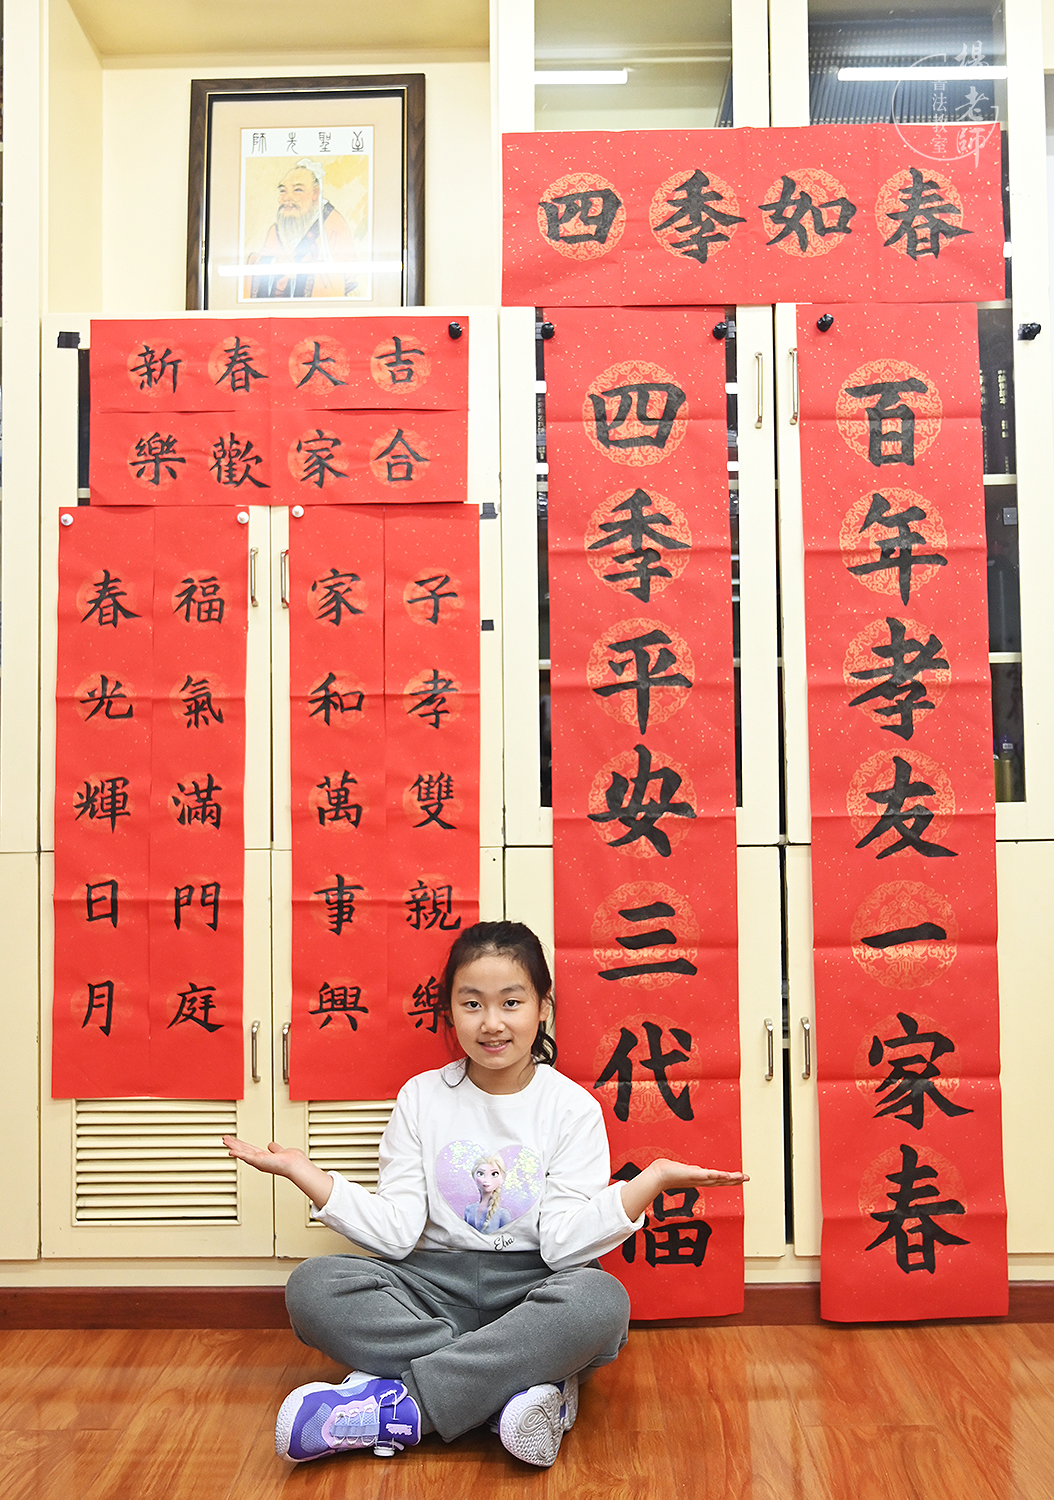 至聖先師
楊老師
書法教室
四季如春
百年孝友一家春
四季平安三代福
新春大吉
合家歡樂
子孝雙親樂
家和萬事興
福氣滿門庭
春光輝日月
Elsa